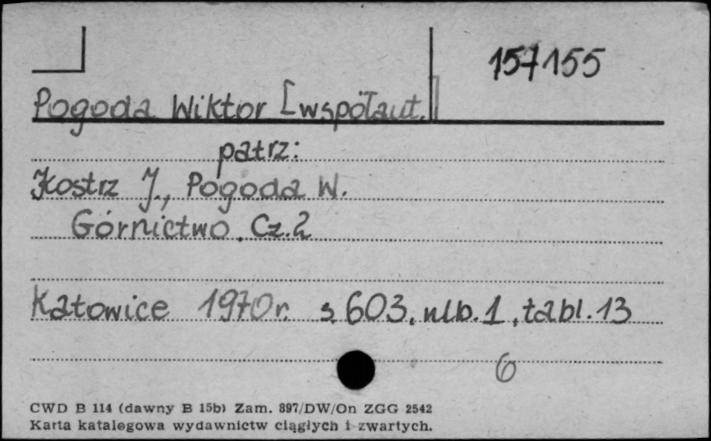 157155
Pogoda Wiktor [współaut.]
patrz:
Kostrz J., Pogoda W.
Górnictwo. Cz.2
Katowice 1970r. s 603, nlb.1, tabl.13
6
CWD B 114 (dawny B 15b) Zam. 897/DW/On ZGG 2542
Karta katalogowa wydawnictw ciągłych i zwartych.